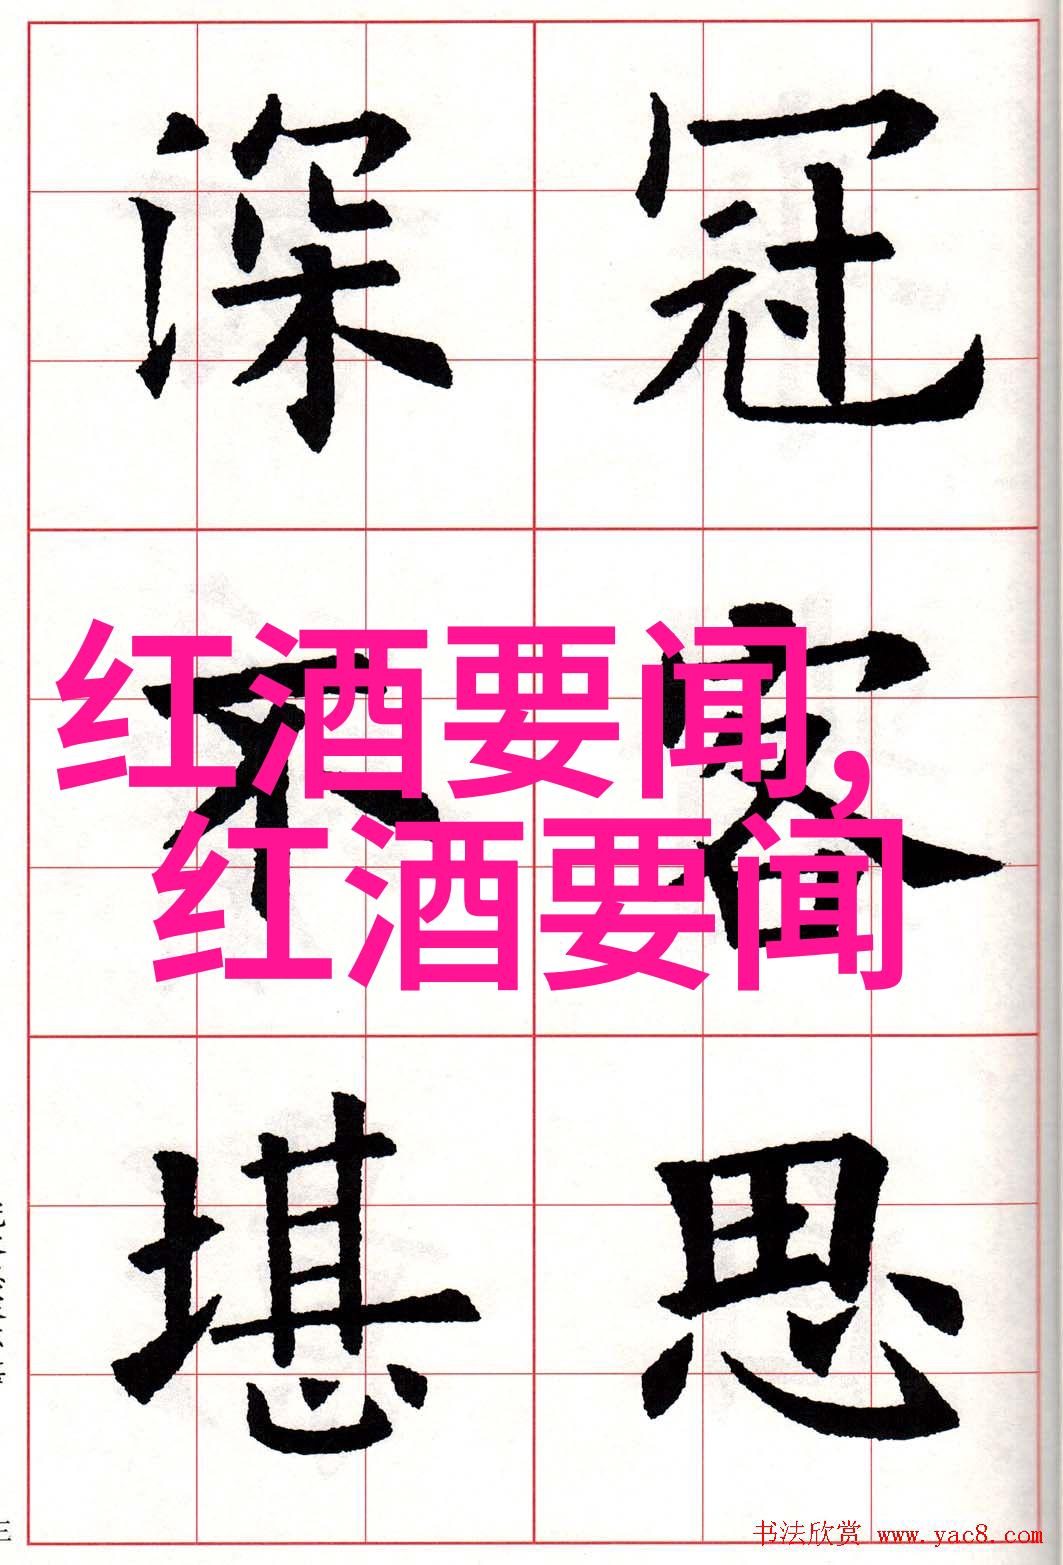 冠客思
深不堪
红酒要闻,
红酒要闻
书法欣赏 www.yac8.com